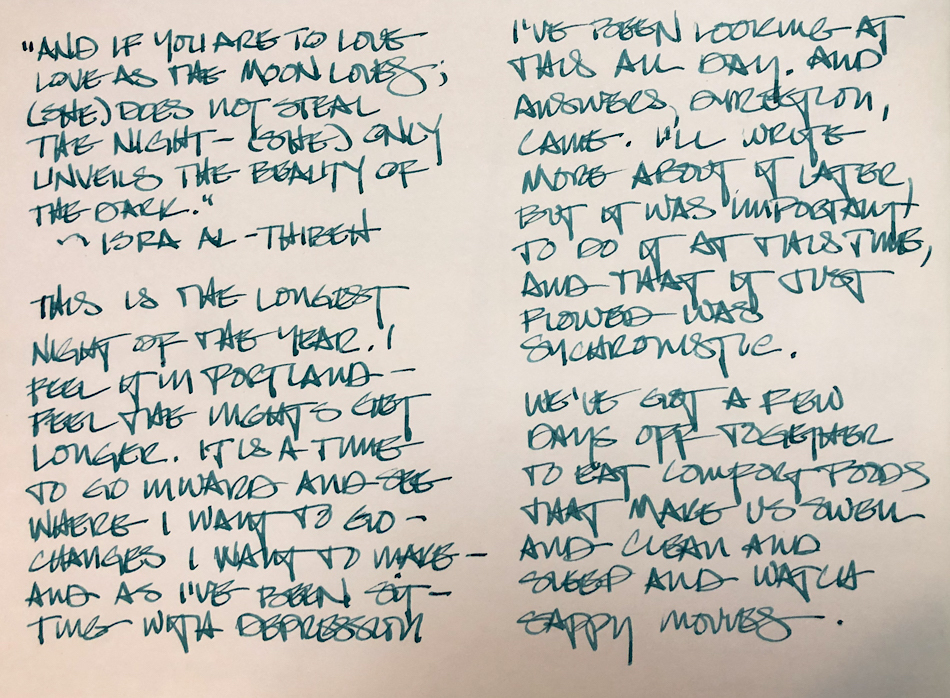 "AND IF YOU ARE TO LOVE
LOVE AS THE MOON LOVES;
(SHE) DOES NOT STEAL
THE NIGHT – (SHE) ONLY
UNVEILS THE BEAUTY OF
THE DARK."
~ ISRA AL-THIBEH
THIS IS THE LONGEST
NIGHT OF THE YEAR. I
FEEL IT IN PORTLAND –
FEEL THE NIGHTS GET
LONGER. IT IS A TIME
TO GO INWARD AND SEE
WHERE I WANT TO GO –
CHANGES I WANT TO MAKE –
AND AS I'VE BEEN SIT-
TING WITH DEPRESSION
I'VE BEEN LOOKING AT
THIS ALL DAY. AND
ANSWERS, DIRECTION,
CAME. I'LL WRITE
MORE ABOUT IT LATER,
BUT IT WAS IMPORTANT
TO DO IT AT THIS TIME,
AND THAT IT JUST
FLOWED WAS
SYCHRONISTIC.
WE'VE GOT A FEW
DAYS OFF TOGETHER
TO EAT COMFORT FOODS
THAT MAKE US SWELL
AND CLEAN AND
SLEEP AND WATCH
SAPPY MOVIES.